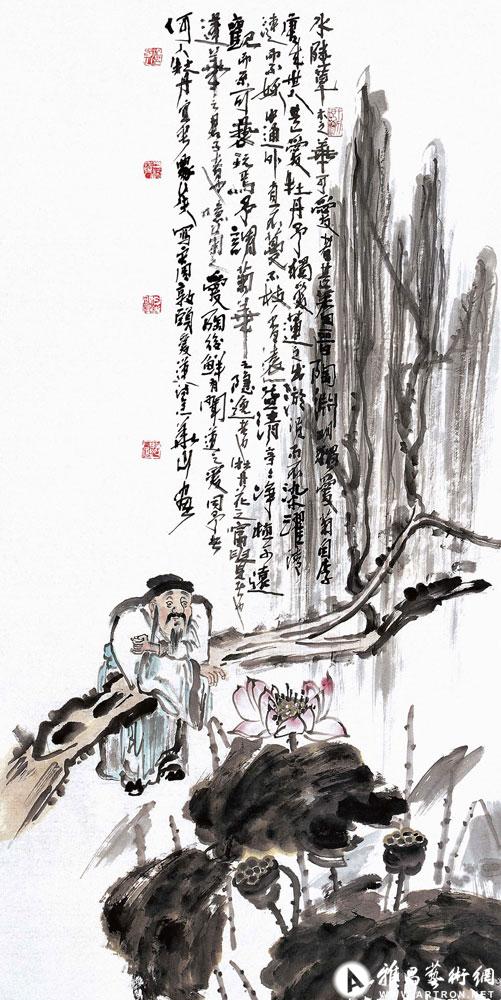 水陸草木之華可愛者甚蕃晉陶淵明獨愛菊自李
唐來世人甚愛牡丹予獨愛蓮之出淤泥而不染濯清
漣而不妖中通外直不蔓不枝香遠益清亭亭淨植可遠
觀而不可褻玩焉予謂菊華之隱逸者也牡丹花之富貴者也
蓮華之君子者也噫菊之愛陶後鮮有聞蓮之愛同予者
何人牡丹宜乎衆矣寫宋周敦頤愛蓮 畫
雅昌藝術網
WWW.ARTRON.NET